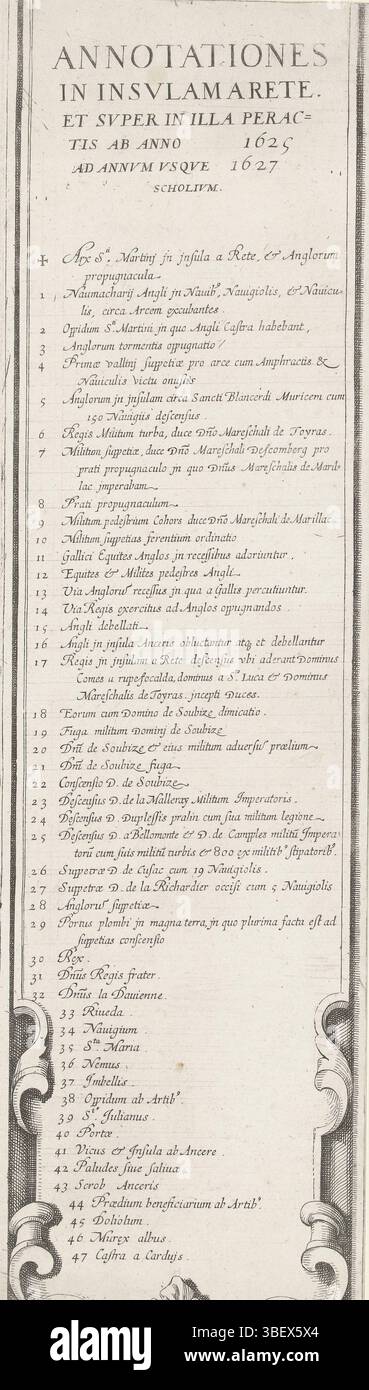 ANNOTATIONES
IN INSVLAM A RETE.
ET SVPER IN ILLA PERAC=
TIS AB ANNO 1625
AD ANNVM VSQVE 1627
SCHOLIVM.
✠ Arx S.ti Martinj jn jnsula a Rete, & Anglorum
propugnacula
1 Naumacharij Angli jn Nauib9, Nauigiolis, & Nauicu-
lis, circa Arcem excubantes.
2 Oppidum S.ti Martini jn quo Angli Castra habebant,
3 Anglorum tormentis oppugnatio /
4 Primæ vallinj suppetiæ pro arce cum Amphractis &
Nauiculis victu onustis
5 Anglorum jn jnsulam circa Sancti Blancerdi Muricem cum
150 Nauigiis descensus.
6 Regis Militum turba, duce Dño Mareschali de Toyras.
7 Militum suppetiæ, duce Dño Mareschaly Descomberg pro
prati propugnaculo jn quo Dñus Mareschalis de Maril-
lac jmperabam
8 Prati propugnaculum
9 Militum pedestrium Cohors duce Dño Mareschali de Marillac
10 Militum suppetias ferentium ordinatio
11 Gallici Equites Anglos jn recessibus adoriuntur.
12 Equites & Milites pedestres Angli
13 Via Anglorũ recessus jn qua a Galles percutiuntur.
14 Via Regis exercitus ad Anglos oppugnandos
15 Angli debellati
16 Angli jn jnsula Anceris obluctantur atq, et debellantur
17 Regis jn jnsulam a Rete descensus vbi aderant Dominus
Comes a rupefocalda, dominus a S.to Luca & Dominus
Mareschalis de Toyras. jncepti Duces.
18 Eorum cum Domino de Soubize dimicatio.
19 Fuga militum Dominj de Soubize
20 Dñi de Soubize & eius militum aduersus prælium
21 Dñi de Soubize fuga
22 Conscensio D. de Soubize
23 Descensus D. de la Malleray Militum Imperatoris.
24 Descensus D. Duplessis pralin cum sua militum legione.
25 Descensus D. a Bellomonte & D. de Campples militũ Impera-
torũ cum suis militũ turbis & 800 ex militib9 stipatorib9.
26 Suppetræ D. de Cusac cum 19 Nauigiolis.
27 Suppetræ D. de la Richardier occisi cum 5 Nauigiolis
28 Anglorũ suppetiæ
29 Portus plombi jn magna terra, jn quo plurima facta est ad
suppetias conscensio
30 Rex.
31 Dñus Regis frater.
32 Dñus la Dauienne.
33 Riueda.
34 Nauigium.
35 S.ta Maria.
36 Nemus.
37 Jmbellis.
38 Oppidum ab Artib9.
39 S.t Julianus.
40 Portæ.
41 Vicus & Jnsula ab Ancere.
42 Paludes siue saliua
43 Scrob Anceris
44 Prædium beneficiarium ab Artib9.
45 Doliolum.
46 Murex albus.
47 Castra a Cardujs.
alamy
Image ID: 3BEX5X4
www.alamy.com